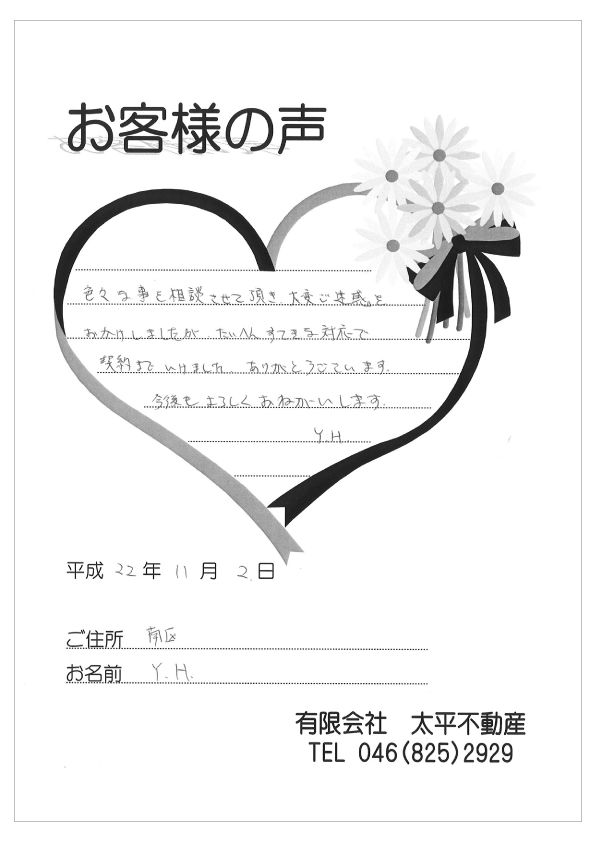 お客様の声
色々な事も相談させて頂き 大変ご迷惑を
おかけしましたが たいへん すてきな対応で
契約まで いけました。ありがとうございます。
今後も よろしく おねがいします。
Y.H
平成 22 年 11 月 2 日
ご住所 南区
お名前 Y.H.
有限会社 太平不動産
TEL 046(825)2929